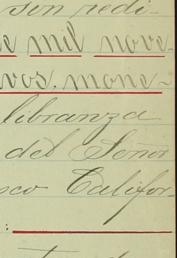 son redi-
e mil nove-
vos. mone-
libranza
del Señor
sco Califor-
: